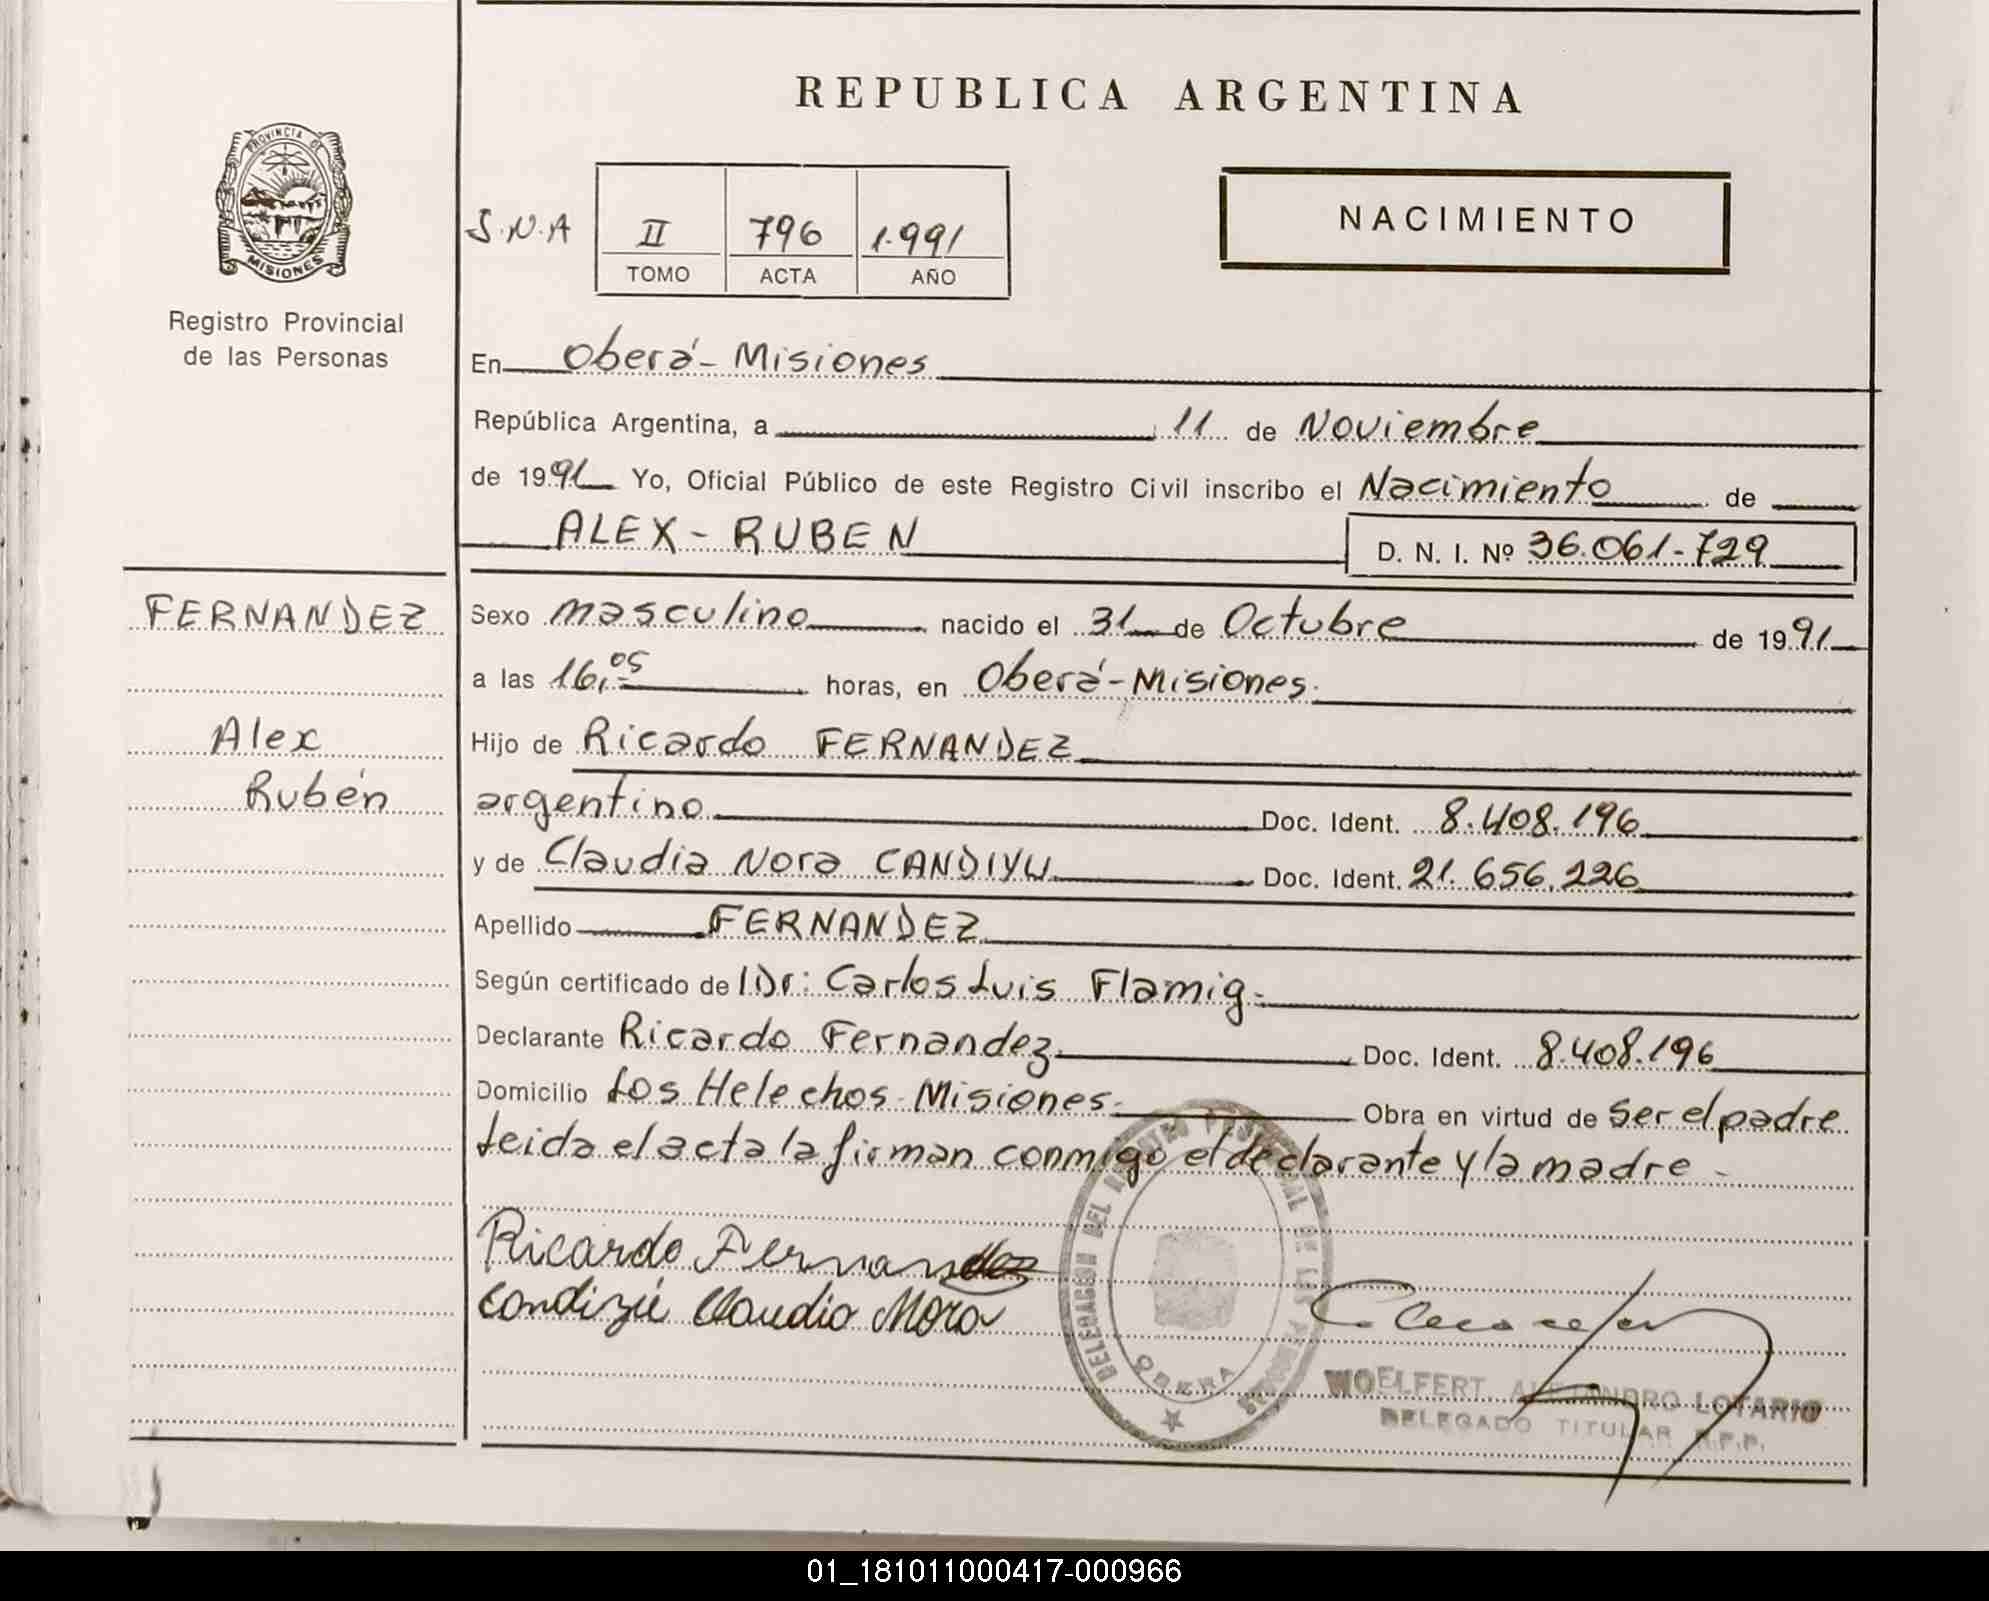 REPUBLICA ARGENTINA
PROVINCIA DE
MISIONES
Registro Provincial
de las Personas
S.N.A
II 796 1.991
TOMO ACTA AÑO
NACIMIENTO
En Oberá - Misiones
República Argentina, a 11 de Noviembre
de 1991 Yo, Oficial Público de este Registro Civil inscribo el Nacimiento de
ALEX - RUBEN D. N. I. Nº 36.061-729
FERNANDEZ
Alex
Rubén
Sexo masculino nacido el 31 de Octubre de 1991
a las 16,05 horas, en Oberá - Misiones.
Hijo de Ricardo FERNANDEZ
argentino Doc. Ident. 8.408.196
y de Claudia Nora CANDIYU Doc. Ident. 21.656.226
Apellido FERNANDEZ
Según certificado de Dr: Carlos Luis Flamig.
Declarante Ricardo Fernandez Doc. Ident. 8.408.196
Domicilio Los Helechos - Misiones - Obra en virtud de Ser el padre
Leida el acta la firman conmigo el declarante y la madre -
Ricardo Fernandez
Candiyú Claudia Nora
DELEGACION DEL REGISTRO PROVINCIAL DE LAS PERSONAS
OBERA
WOELFERT ALEJANDRO LOTARIO
DELEGADO TITULAR R.P.P.
01_181011000417-000966